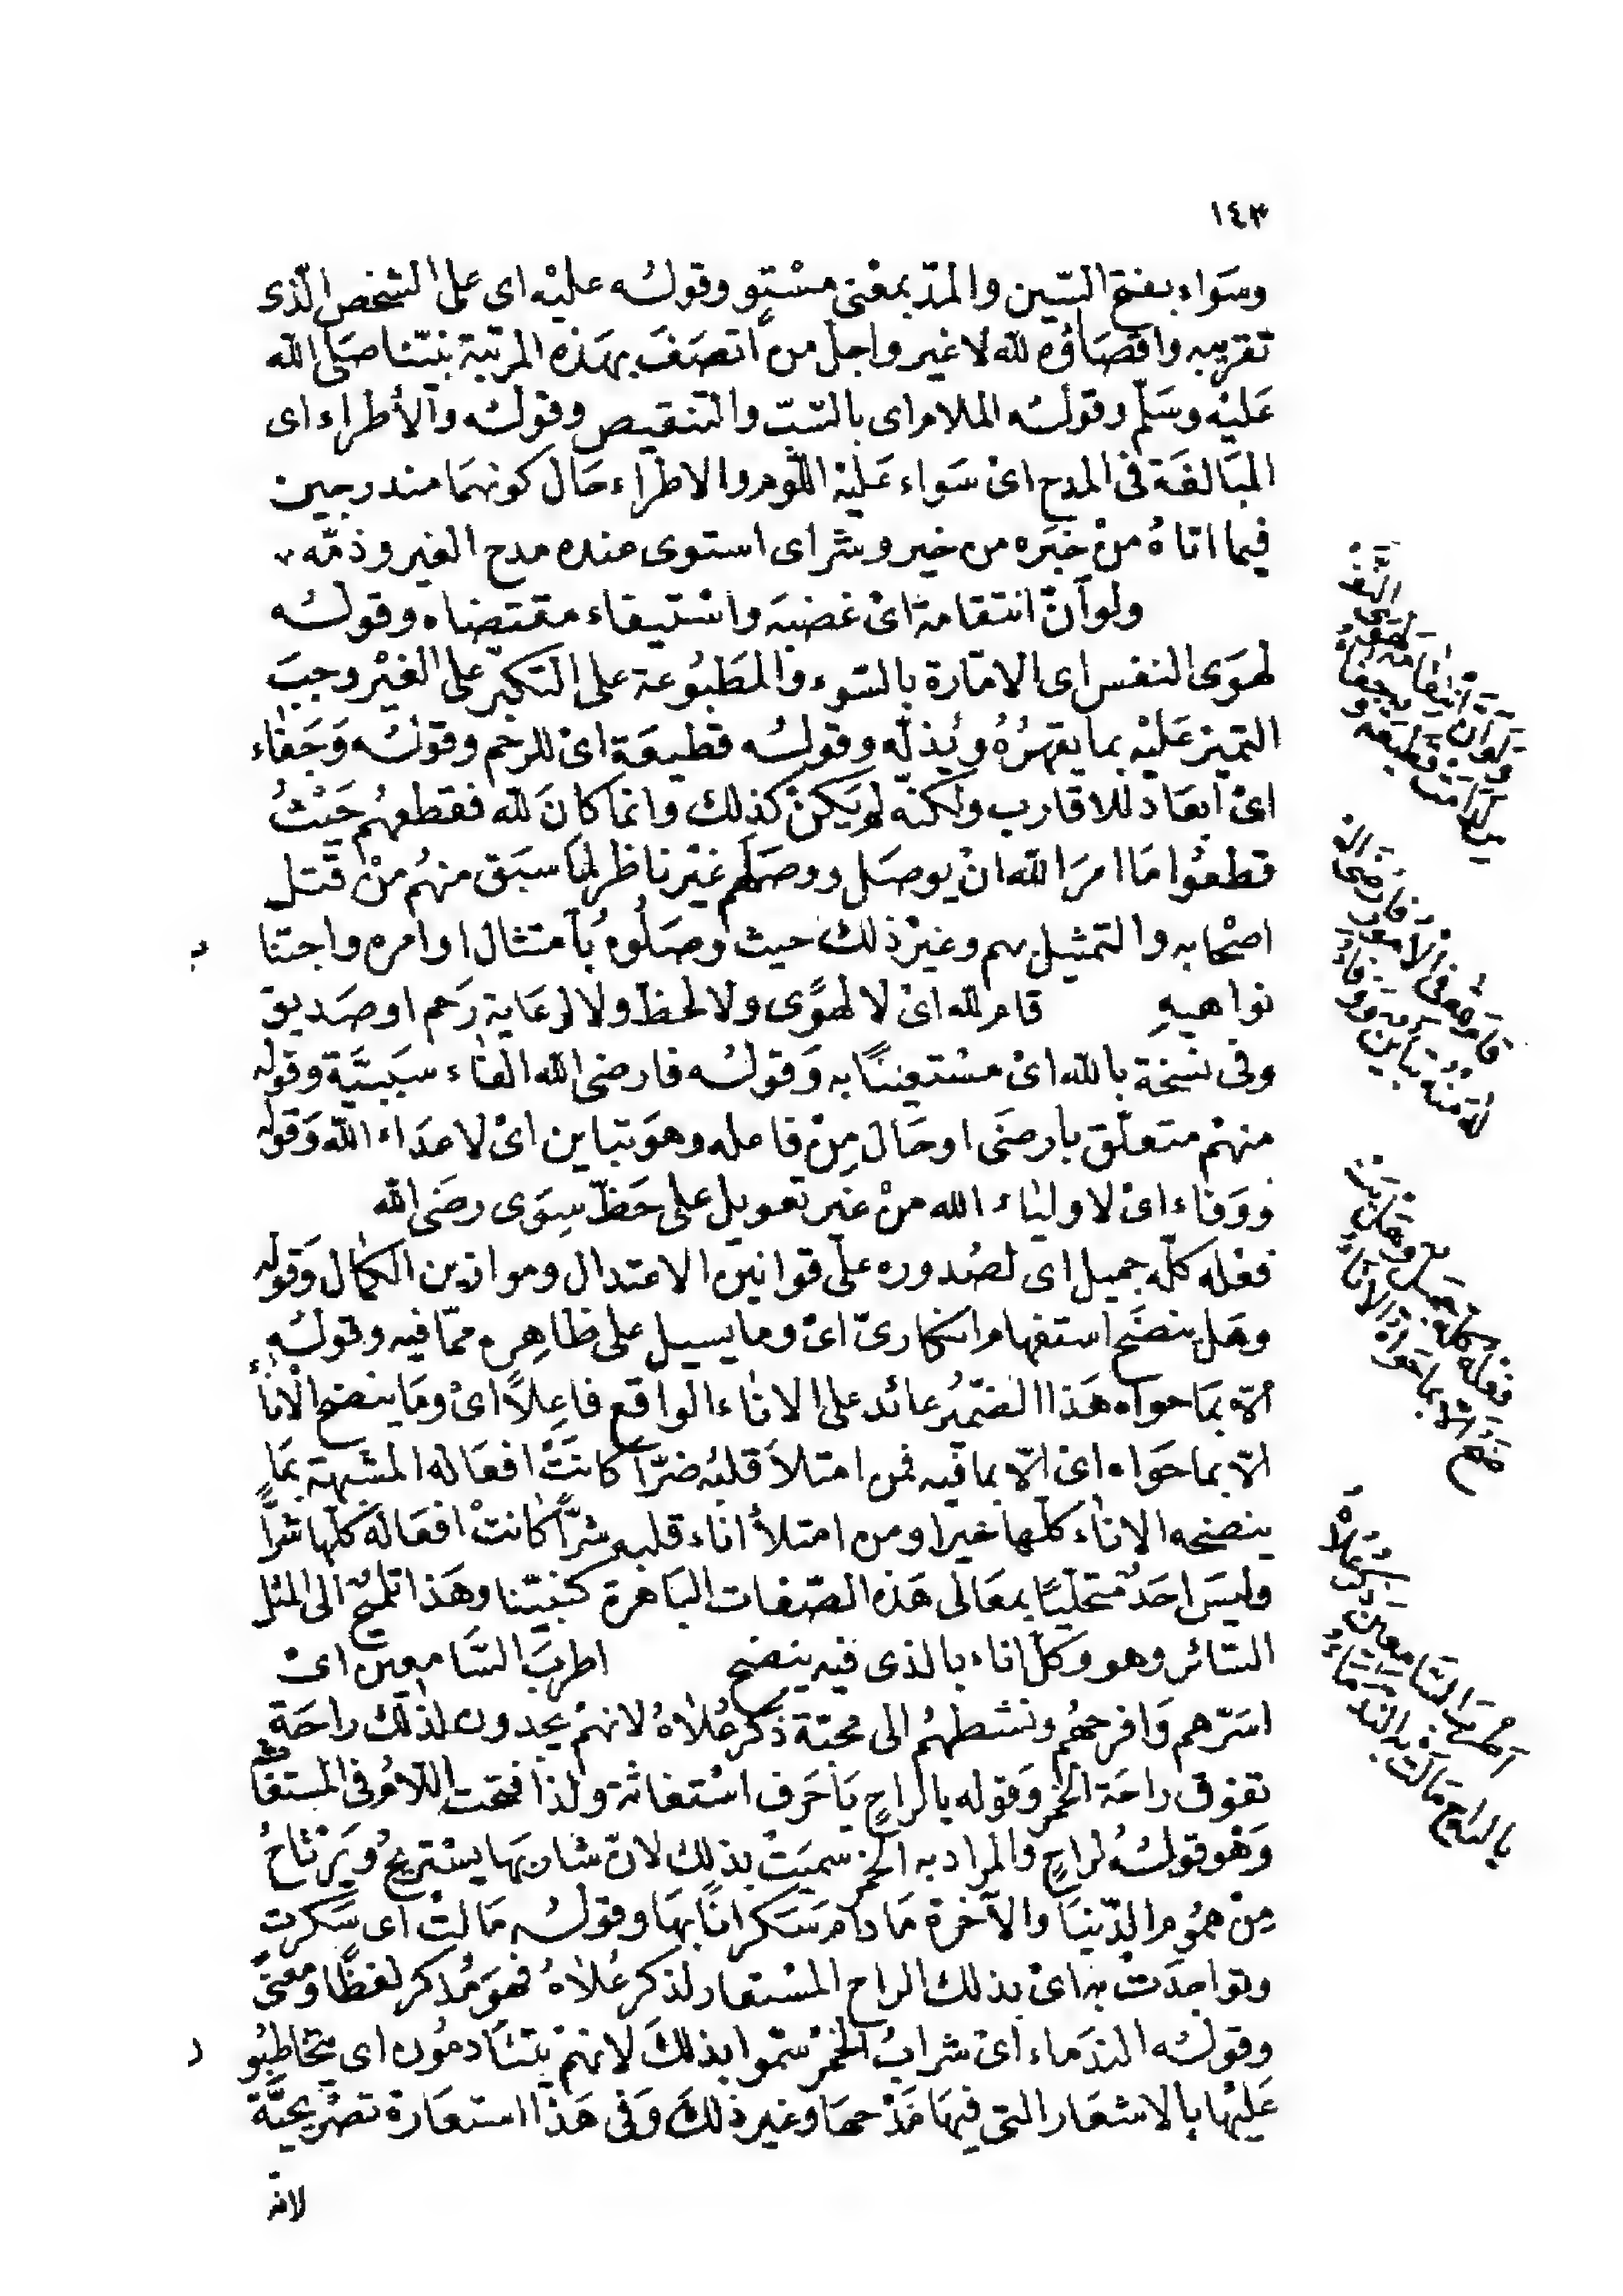 ١٤٣
وسَواء بفتح السّين والمدّ بمعْنى مسْتوٍ وقولُه عليْه اى على الشخص الّذى
تقريبه واقصاؤه لله لا غير واجلّ من اتصَفَ بهَذه المرتبة نبيّنا صَلى الله
عَليْه وسَلّم وقولُه الملام اى بالسّبّ والتنقيص وقولُه والأطراء اى
المبَالغَة فى المدح اىْ سَواء عَليْه اللّوم والاطراء حَال كونهمَا مندرجين
فيما اتاهُ منْ خبَره من خير وشر اى استوى عنده مدح الغير وذمّه
ولو آنّ انتقامهُ اىْ غضبَه واسْتيفاء مقتضاه وقولُه
لهوَى النفس اى الامّارة بالسّوء والمَطبُوعة على التكبّر على الغيْر وجبَ
التميز عَليْه بما يقهرُهُ ويُذلّه وقولُه قطيعَة اىْ للرحم وقولُه وَجَفاء
اىْ ابعَاد للاقارب ولكنّه لم يَكنْ كذلك وانما كانَ لله فقطعهُم حَيْثُ
قطعُوا مَا امرَ الله انْ يوصَل ووصَلهم غيْر ناظر لما سبَق منهُم منْ قتل
اصْحابه والتمثيل بهم وغيْر ذلك حيث وصَلُوهُ بآمتثال اوامره واجتنا
ب
نواهيهِ قام لله اىْ لا لهوًى ولا لحظّ ولا لرعَاية رَحم او صَديق
وفى نسْخة بالله اىْ مسْتعِينًا به وَقولُه فارضى الله الفاء سَببيَّة وقوله
منهمْ متعلّق بارضَى او حَال مِنْ فاعله وهوَ تباين اىْ لاعدَاء الله وَقوله
ووَفاء اىْ لاولياء الله منْ غير تعويل على حَظّ سِوَى رضَى الله
فعْله كلّه جميل اى لصُدوره على قوانين الاعتدال وموازين الكمال وَقوله
وهَل ينضَح استفهام انكارىّ اىْ وما يسيل على ظاهِره ممّا فيه وقولُه
الّا بمَا حواه هَذا الضّميُر عائد على الاناء الواقع فاعِلًا اىْ ومَا ينضح الانأ
الّا بما حَواه اىْ الّا بما فيه فمن امتلأ قلبُه ضرًّا كانَتْ افعَاله المشبهة بمَا
ينضحه الاناء كلّها خيرا ومن امتلأ اناء قلبه شرًّا كانتْ افعَاله كلّها شرًّا
وليسَ احَدٌ متحليًا بمعَالى هَذه الصّفات البَاهرة كنبيّنا وهَذا تلميح الى المثل
السّائر وهو وكلّ اناء بالذى فيه ينضح اطربَ السَّامعِين اىْ
اسَرّهم وَافرحهُم ونشطهُم الى محبّة ذكر عُلاهُ لانهمُ يجدون لذلك راحَة
تفوق راحَة الخمر وَقوله يا لراحٍ يَا حَرف اسْتغاثة ولذا فتحت اللّامُ فى المستغا
ث
وَهْو قولُهُ لراحٍ والمراد به الخمر سميَتْ بذلك لانّ شاربهَا يسْتريحُ ويَرْتاحُ
مِنْ همُوم الدّنيَا والآخرة مَا دام سَكرانًا بهَا وقولُه مَالتْ اى سَكرت
وتواجدَتْ به اىْ بذلك الراح المسْتعار لذكر عُلاهُ فهوَ مُذكر لفظًا ومعْنًى
وقولُه الندَماء اىْ شرابُ الخمْر سُمّوا بذلكَ لانهمْ يتنَادمُون اى يتخاطبُو
ن
عَليْها بالاشعَار التى فيهَا مَدْحهَا وغير ذلك وَفى هَذا استعَارة تصْريحيَّة
لانه
وَلَوَ آنَّ انتقامَهُ لهَوَى النَّفْسِ
لَدَامَتْ قطيعَة وجَفاءُ
قامَ لله فى الأمُور فارضَى الله
لهَ منْهُ تباينٌ ووَفاءُ
فعله كلهُ جميلٌ وهَل يَنْضَحُ
الّا بما حَواهُ الاناءُ
أطرَبَ السَّامعينَ ذكرُ عُلاهُ
يا لراحٍ مَالت به الندمَاءُ